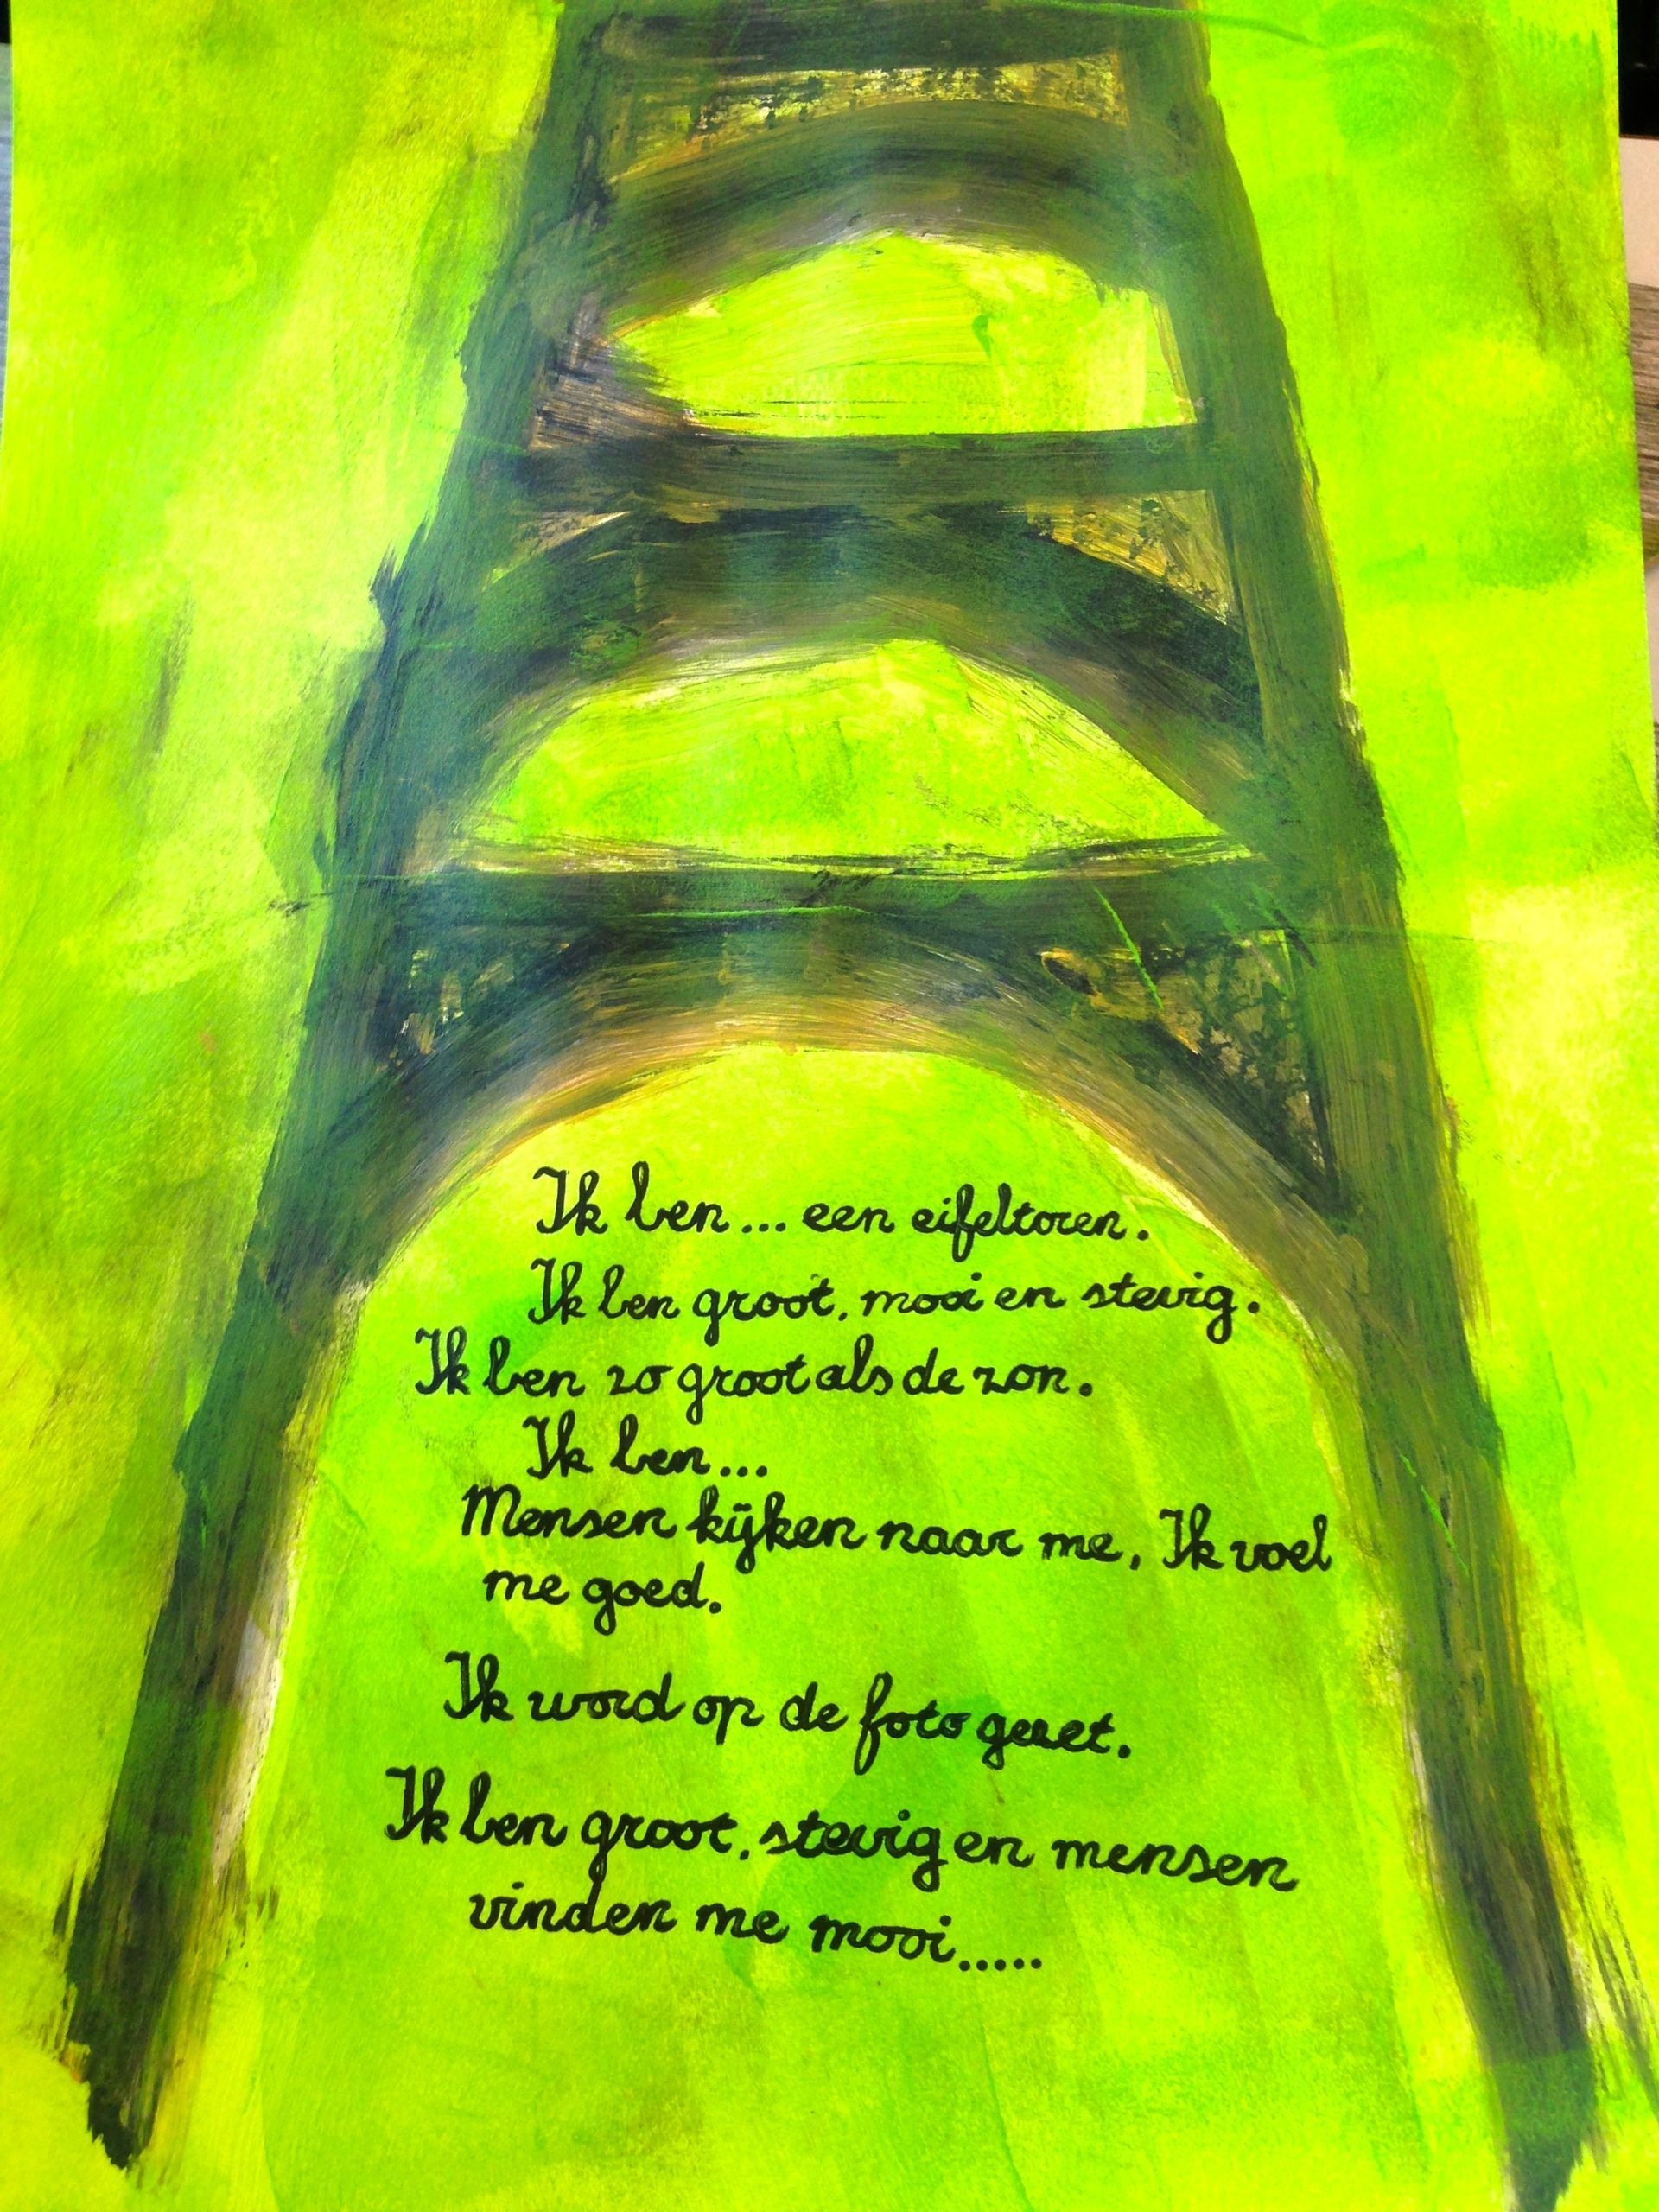 Ik ben... een eifeltoren.
Ik ben groot, mooi en stevig.
Ik ben zo groot als de zon.
Ik ben...
Mensen kijken naar me, Ik voel
me goed.
Ik word op de foto gezet.
Ik ben groot, stevig en mensen
vinden me mooi.....